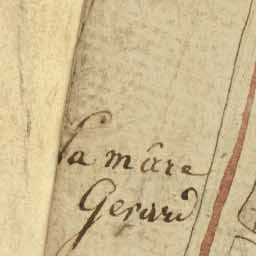 la mâre
Gerard